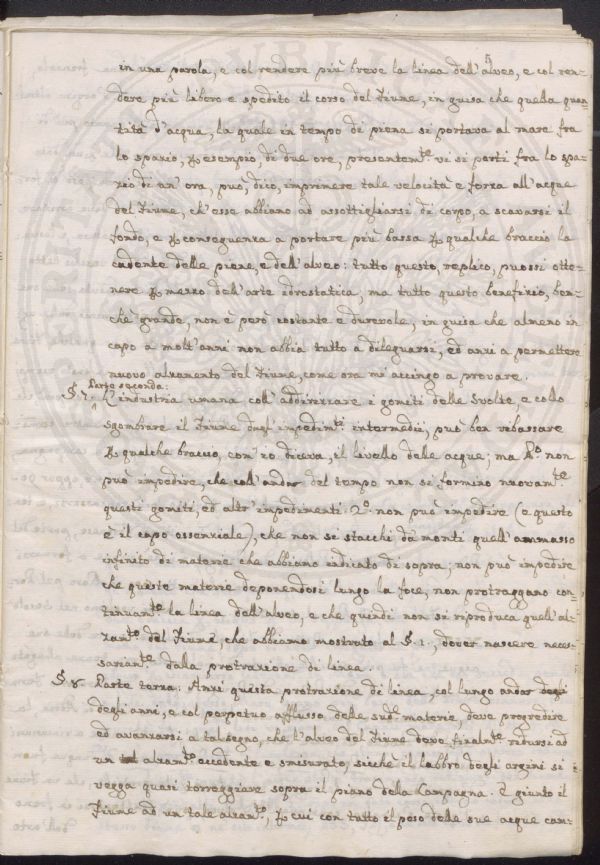 5
in una parola, e col rendere più breve la linea dell'alveo, e col ren-
dere più libero e spedito il corso del Fiume, in guisa che quella quan-
tità d'acqua, la quale in tempo di piena si portava al mare fra
lo spazio, p esempio, di due ore, presentem.te vi si porti fra lo spa-
zio di un'ora, può, dico, imprimere tale velocità e forza all'acque
del Fiume, ch'esse abbiano ad assottigliarsi di corpo, a scavarsi il
fondo, e p conseguenza a portare più bassa p qualche braccio la
cadente delle piene, e dell'alveo: tutto questo, replico, puossi otte-
nere p mezzo dell'arte idrostatica, ma tutto questo benefizio, ben-
chè grande, non è però costante e durevole, in guisa che almeno in
capo a molt'anni non abbia tutto a dileguarsi, ed anzi a permettere
nuovo alzamento del Fiume, come ora m'accingo a provare.
Parte seconda:
§. 7. L'industria umana coll'addirizzare i gomiti delle Svolte, e collo
sgombrare il Fiume dagl'impedim.ti intermedii, può ben ribassare
p qualche braccio, com'io diceva, il livello delle acque; ma P.o non
può impedire, che coll'andar del tempo non si formino nuovam.te
questi gomiti, ed altr'impedimenti. 2.o non può impedire (e questo
è il capo essenziale), che non si stacchi da monti quell'ammasso
infinito di materie che abbiamo indicato di sopra; non può impedire
che queste materie deponendosi lungo la foce, non protraggano con-
tinuam.te la linea dell'alveo, e che quindi non si riproduca quell'al-
zam.to del Fiume, che abbiamo mostrato al §. 1., dover nascere neces-
sariam.te dalla protrazione di linea.
§. 8. Parte terza: Anzi questa protrazione di linea, col lungo andar degli
degli anni, e col perpetuo afflusso delle sud.e materie, deve progredire
ed avanzarsi a tal segno, che l'alveo del Fiume deve finalm.te ridursi ad
un alzam.to eccedente e smisurato, sicchè il labbro degli argini si
vegga quasi torreggiare sopra il piano della Campagna. E giunto il
Fiume ad un tale alzam.to, p cui con tutto il peso delle sue acque cam-